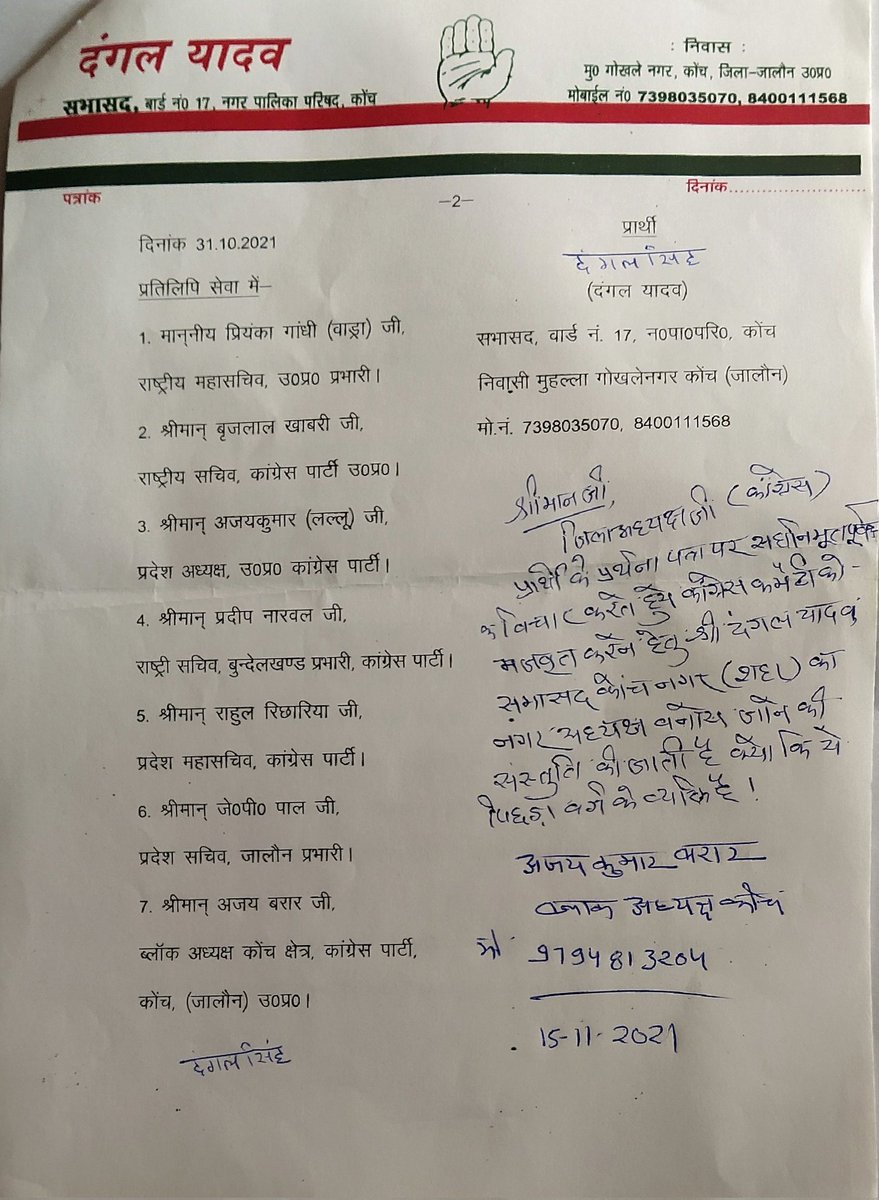 दंगल यादव
सभासद, वार्ड नं0 17, नगर पालिका परिषद, कोंच
: निवास :
मु0 गोखले नगर, कोंच, जिला-जालौन उ0प्र0
मोबाईल नं0 7398035070, 8400111568
पत्रांक
दिनांक........................
–2–
दिनांक 31.10.2021
प्रतिलिपि सेवा में–
1. माननीय प्रियंका गांधी (वाड्रा) जी,
राष्ट्रीय महासचिव, उ0प्र0 प्रभारी।
2. श्रीमान् बृजलाल खाबरी जी,
राष्ट्रीय सचिव, कांग्रेस पार्टी उ0प्र0।
3. श्रीमान् अजयकुमार (लल्लू) जी,
प्रदेश अध्यक्ष, उ0प्र0 कांग्रेस पार्टी।
4. श्रीमान् प्रदीप नारवल जी,
राष्ट्री सचिव, बुन्देलखण्ड प्रभारी, कांग्रेस पार्टी।
5. श्रीमान् राहुल रिछारिया जी,
प्रदेश महासचिव, कांग्रेस पार्टी।
6. श्रीमान् जे0पी0 पाल जी,
प्रदेश सचिव, जालौन प्रभारी।
7. श्रीमान् अजय बरार जी,
ब्लॉक अध्यक्ष कोंच क्षेत्र, कांग्रेस पार्टी,
कोंच, (जालौन) उ0प्र0।
दंगल सिंह
प्रार्थी
दंगल सिंह
(दंगल यादव)
सभासद, वार्ड नं. 17, न0पा0परि0, कोंच
निवासी मुहल्ला गोखलेनगर कोंच (जालौन)
मो.नं. 7398035070, 8400111568
श्रीमान जी,
जिला अध्यक्ष जी (कांग्रेस)
प्रार्थी के प्रर्थना पत्र पर
विचार करते हुये कांग्रेस कमेटी को
मजबूत करने हेतु श्री दंगल यादव
सभासद कोंच नगर (शहर) का
नगर अध्यक्ष बनाये जाने की
संस्तुति की जाती है क्यो कि ये
पिछड़ा वर्ग के व्यक्ति है।
अजय कुमार बरार
ब्लाक अध्यक्ष कोंच
मो 9794813204
15-11-2021